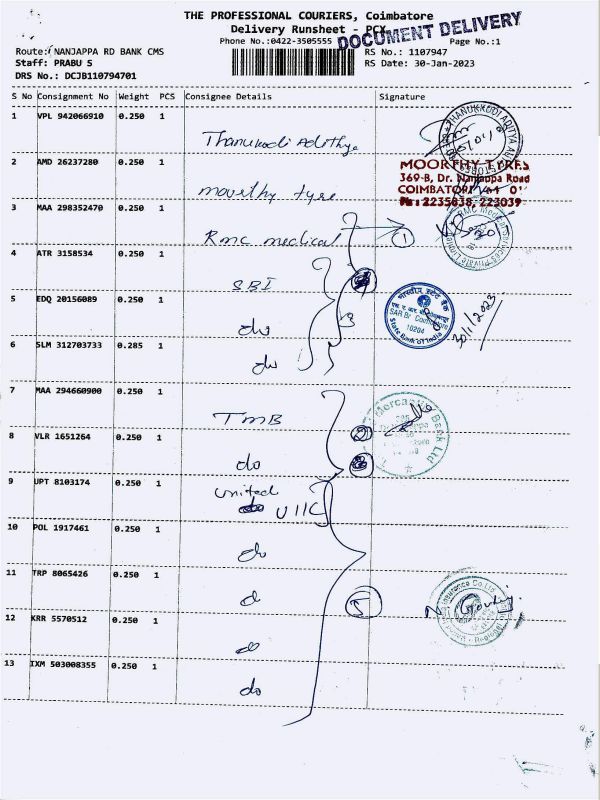 THE PROFESSIONAL COURIERS, Coimbatore
Delivery Runsheet - PCX
DOCUMENT DELIVERY
Phone No.:0422-3505555 Page No.:1
Route: NANJAPPA RD BANK CMS RS No.: 1107947
Staff: PRABU S RS Date: 30-Jan-2023
DRS No.: DCJB110794701
S No Consignment No Weight PCS Consignee Details Signature
1 VPL 942066910 0.250 1
Thanukodi Adithya
2 AMD 26237280 0.250 1
moorthy tyre
MOORTHY TYRES
369-B, Dr. Nanjappa Road
COIMBATORE
2235838, 223039
3 MAA 298352470 0.250 1
RMC medical 1
4 ATR 3158534 0.250 1
SBI
5 EDQ 20156089 0.250 1
do 3
SAR Br Coimbatore
10204
State Bank of India
30/1/2023
6 SLM 312703733 0.285 1
do
7 MAA 294660900 0.250 1
TMB
Mercantile Bank Ltd
8 VLR 1651264 0.250 1
do
9 UPT 8103174 0.250 1
united
UIIC
10 POL 1917461 0.250 1
do
11 TRP 8065426 0.250 1
d 5
Insurance Co.Ltd
12 KRR 5570512 0.250 1
do
13 IXM 503008355 0.250 1
do